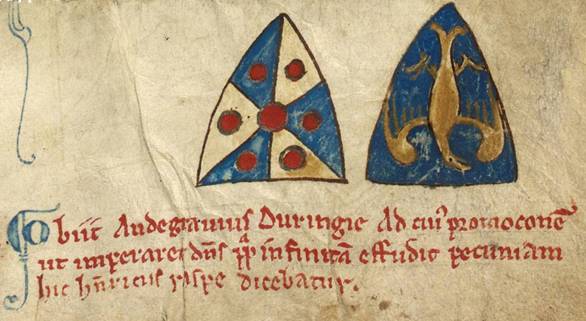 Obiit Andegravius Duringie Ad cuiꝰ promocionē
ut imperaret dn̄s pp̄ infinitā effudit pecuniam
hic hn̄ricus raspe dicebatur.